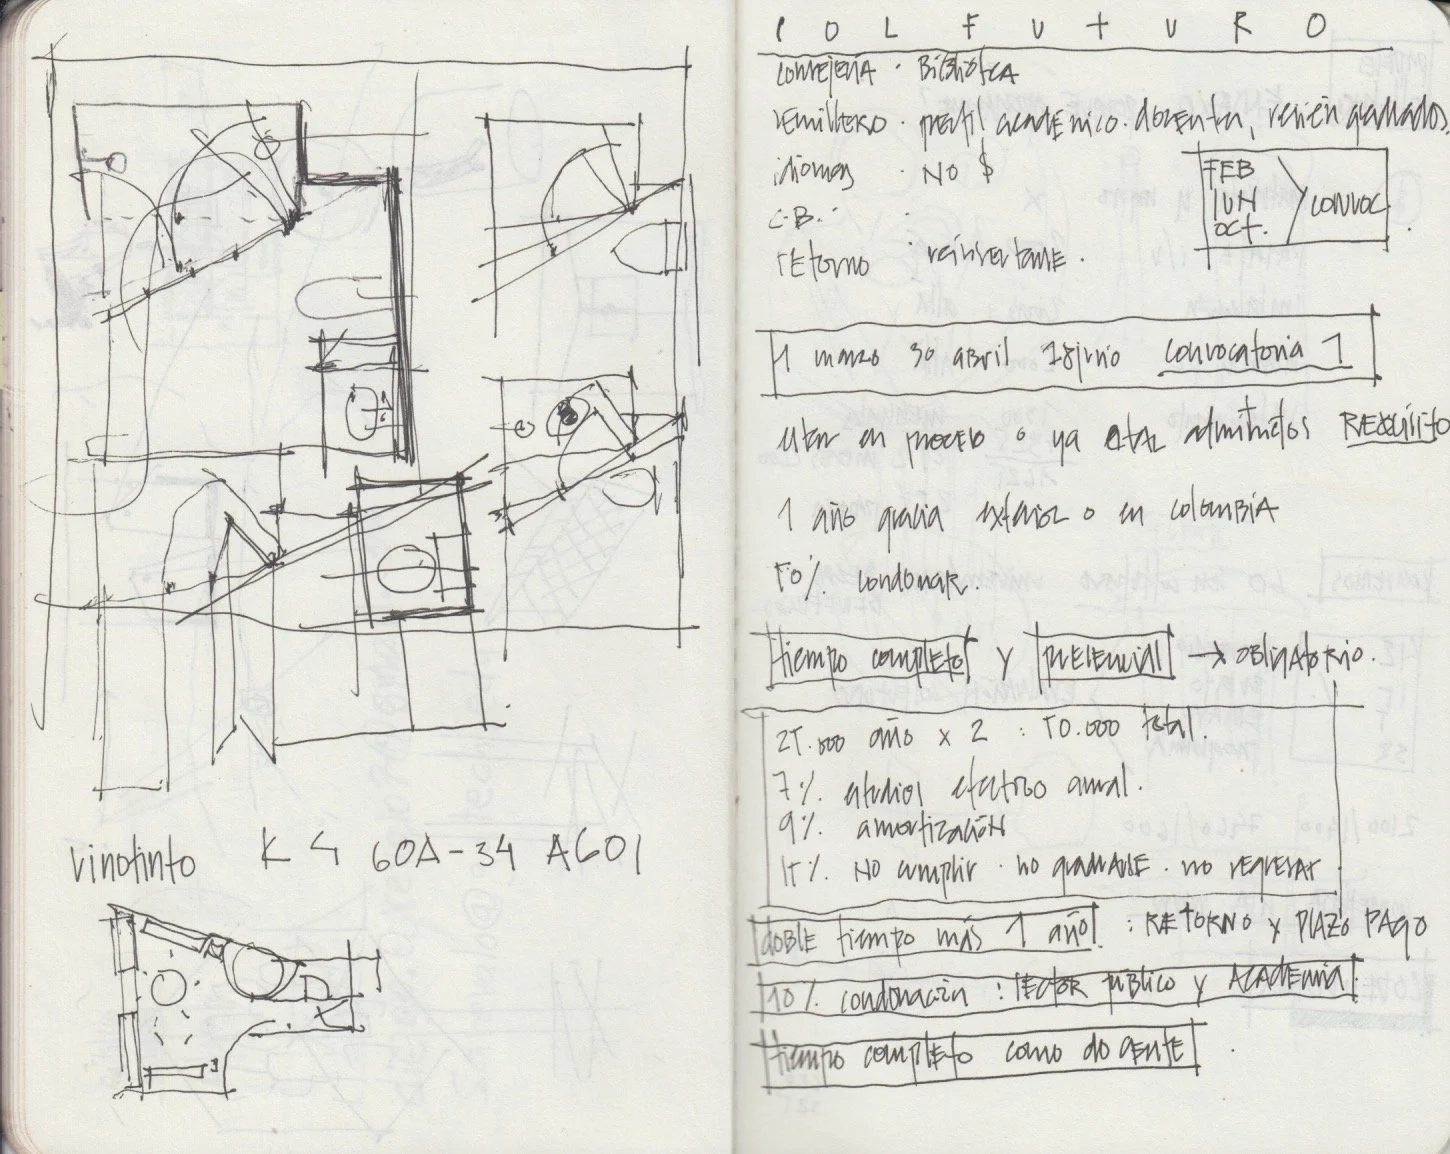 vinotinto K 4 60A-34 A601
COLFUTURO
consejería · Biblioteca
semillero · perfil académico · docentes, recién graduados
idiomas · NO $
C.B. ·
retorno · reinsertarse.
FEB
JUN
OCT.
CONVOC.
1 marzo 30 abril 18 junio convocatoria 1
estar en proceso o ya estar admitidos REQUISITO
1 año gracia exterior o en colombia
50% condonar.
tiempo completo y presencial → OBLIGATORIO.
25.000 año x 2 : 50.000 total.
7% estudios efectivo anual.
9% amortización
15% No cumplir · no graduarse · no regresar
DOBLE tiempo más 1 año : RETORNO y PLAZO PAGO
10% condonación : SECTOR público y ACADEMIA
tiempo completo como docente